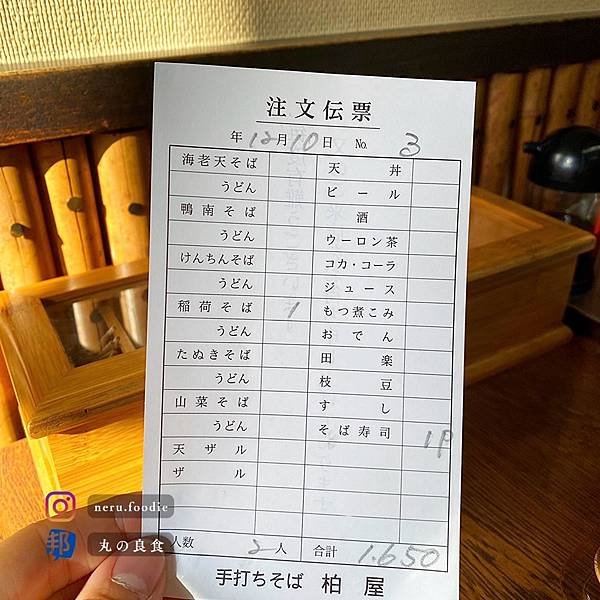 注文伝票
年 12月10日 No. 3
海老天そば 天丼
うどん ビール
鴨南そば 酒
うどん ウーロン茶
けんちんそば コカ・コーラ
うどん ジュース
稲荷そば 1 もつ煮こみ
うどん おでん
たぬきそば 田楽
うどん 枝豆
山菜そば すし
うどん そば寿司 1P
天ザル
ザル
人数 2人 合計 1.650
手打ちそば 柏屋
neru.foodie
邦 丸の良食